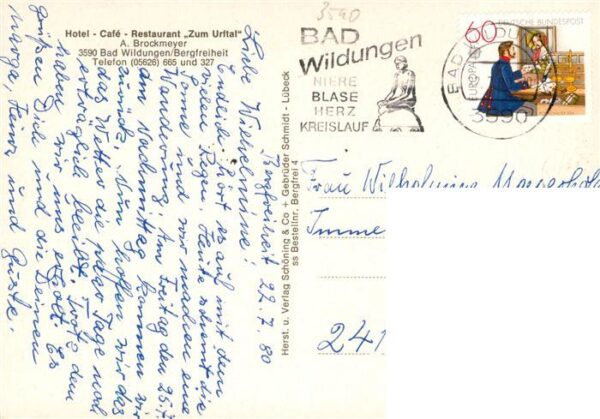 Hotel - Café - Restaurant „Zum Urftal"
A. Brockmeyer
3590 Bad Wildungen/Bergfreiheit
Telefon (05626) 665 und 327
3590
BAD
Wildungen
NIERE
BLASE
HERZ
KREISLAUF
60
DEUTSCHE BUNDESPOST
EUROPA
3590
Bergfreiheit 22.7.80
Liebe Wilhelmine!
Endlich hört es auf mit dem
vielen Regen. Heute scheint die
Sonne und wir machen eine
Wanderung. Am Freitag den 25.7.
am Nachmittag kommen wir
zurück. Nun hoffen wir das
das Wetter die paar Tage noch
erträglich bleibt. Trotz dem
haben wir uns erholt. Es
grüßen Dich und die Deinen
und Guste.
Herst. u. Verlag Schöning & Co + Gebrüder Schmidt - Lübeck
ss Bestellnr. Bergfrei 4
Frau Wilhelmine
Imme
241